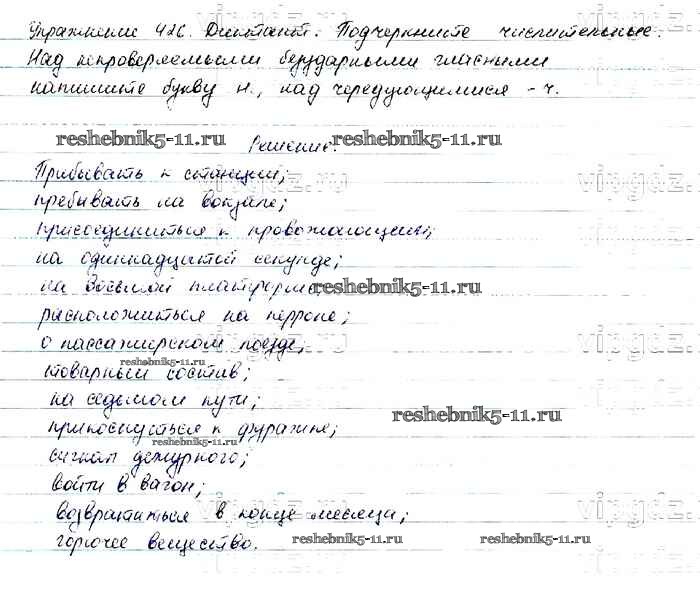 Упражнение 426. Диктант. Подчеркните числительные.
Над непроверяемыми безударными гласными
напишите букву н., над чередующимися - ч.
reshebnik5-11.ru reshebnik5-11.ru
Решение.
Прибывать к станции;
vipgdz.ru
пребывать на вокзале;
присоединиться к провожающим;
на одиннадцатой секунде;
на восьмой платформе;
reshebnik5-11.ru
расположиться на перроне;
о пассажирском поезде;
reshebnik5-11.ru
товарный состав;
на седьмом пути;
reshebnik5-11.ru
прикоснуться к фуражке;
reshebnik5-11.ru
сигнал дежурного;
войти в вагон;
возвратиться в конце месяца;
горючее вещество.
reshebnik5-11.ru reshebnik5-11.ru